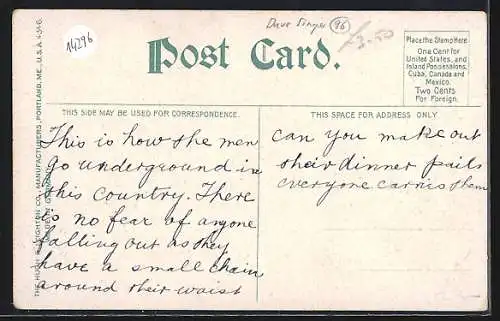 Dave Singer 96
£3-50
14296
Post Card.
Place the Stamp Here
One Cent for
United States, and
Island Possessions,
Cuba, Canada and
Mexico.
Two Cents
For Foreign.
THIS SIDE MAY BE USED FOR CORRESPONDENCE.
THIS SPACE FOR ADDRESS ONLY
This is how the men
go underground in
this country. There
is no fear of anyone
falling out as they
have a small chain
around their waist
can you make out
their dinner pails
everyone carries them
THE HUGH C. LEIGHTON CO., MANUFACTURERS, PORTLAND, ME., U.S.A.